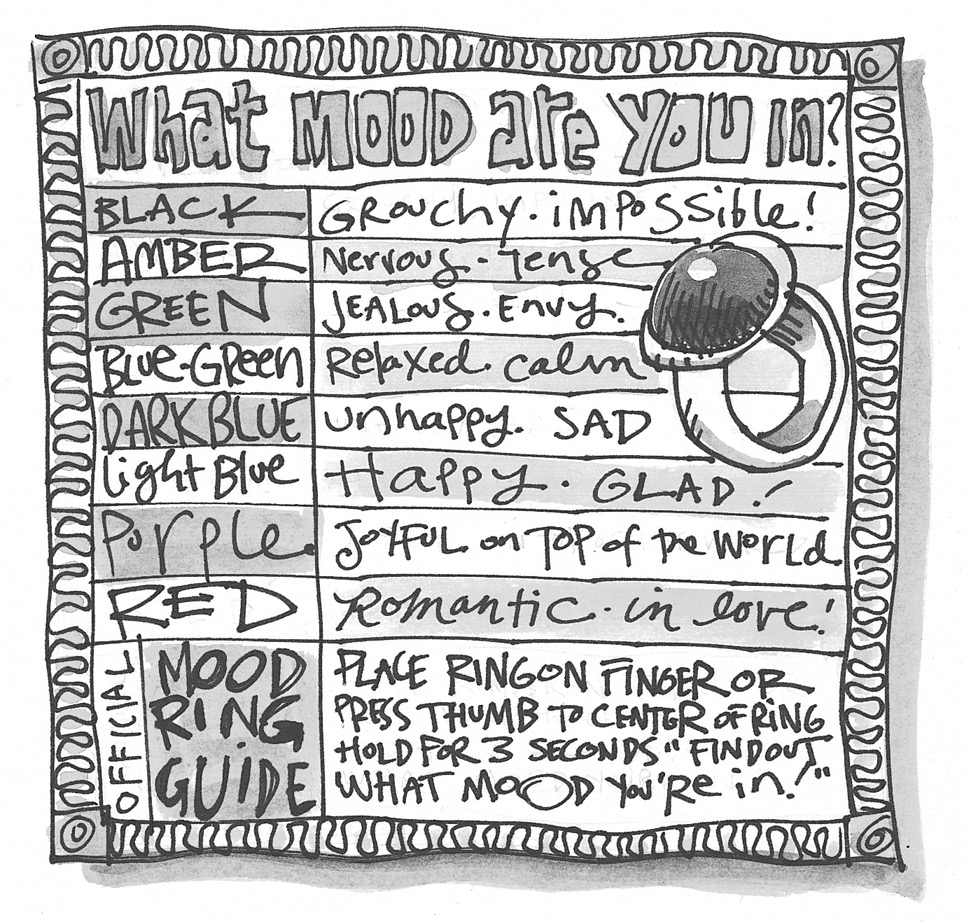 What MOOD are you in?
BLACK GROuchy. iMPOSSible!
AMBER Nervous - Tense
GREEN JEALOUS. Envy.
Blue-GReen Relaxed. calm
DARK BLUE unhappy. SAD
Light Blue Happy. GLAD!
Purple. JOYFUL on TOP of the WORLD
RED Romantic. in love!
OFFICIAL
MOOD
RING
GUIDE
PLACE RING ON FINGER OR
PRESS THUMB TO CENTER OF RING
HOLD FOR 3 SECONDS "FIND OUT
WHAT MOOD YOU'RE in!"